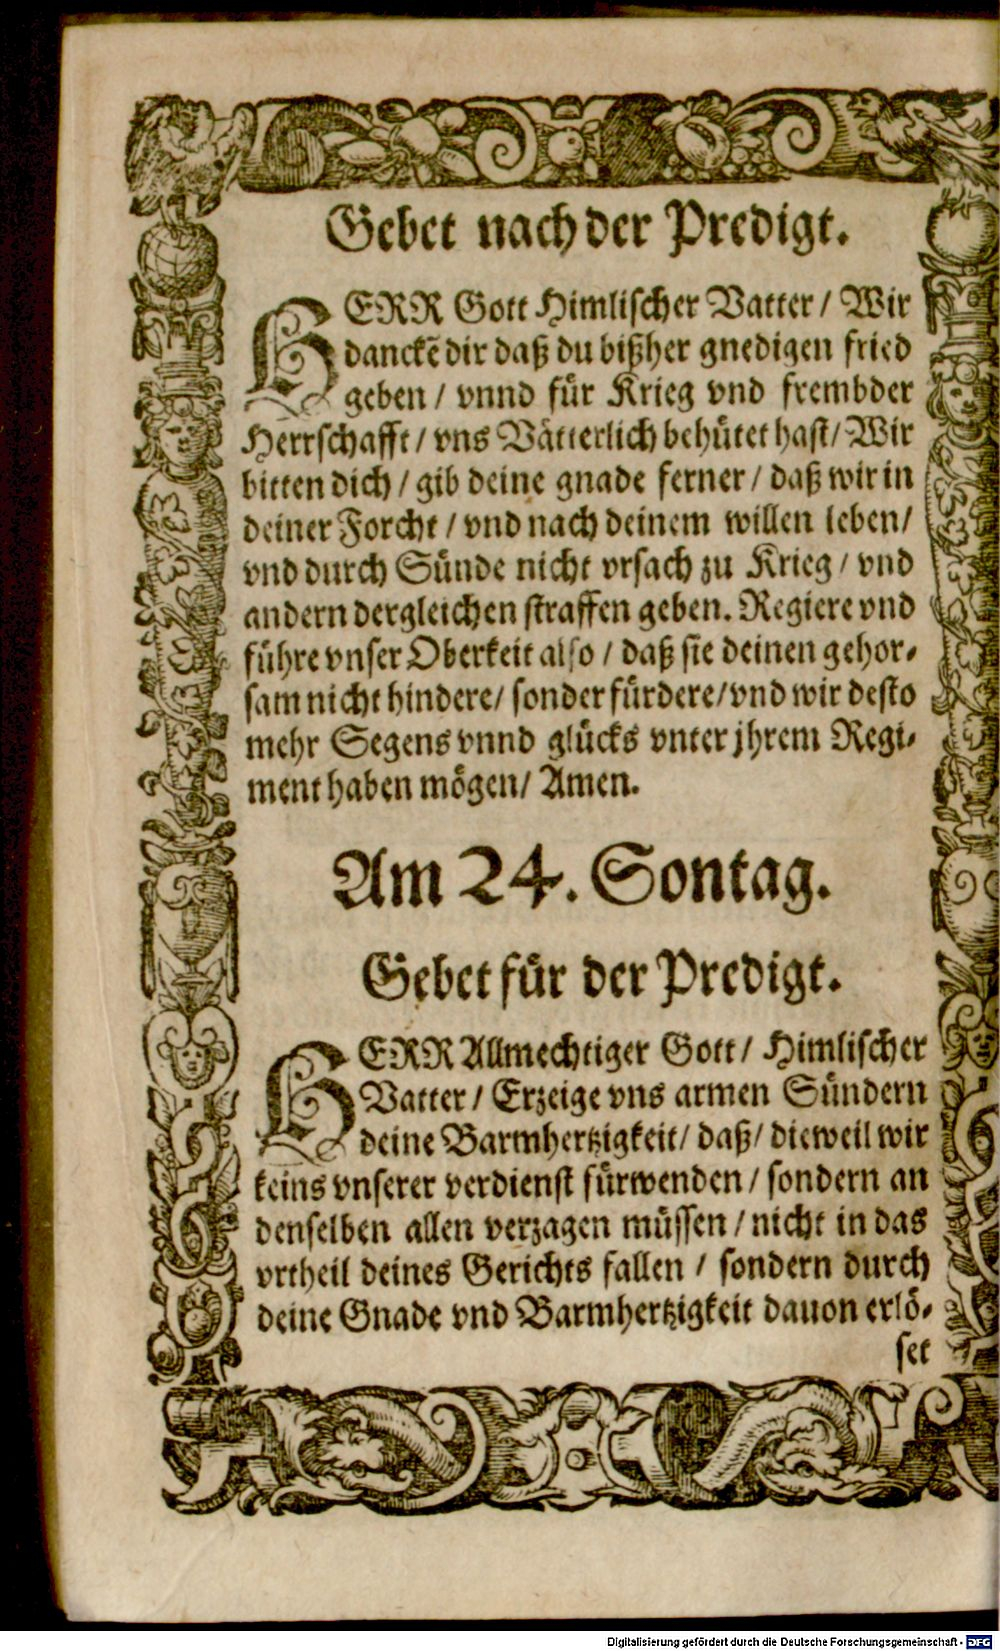 Gebet nach der Predigt.
HERR Gott Himlischer Vatter / Wir
danckē dir daß du bißher gnedigen fried
geben / vnnd für Krieg vnd frembder
Herrschafft / vns Vätterlich behütet hast / Wir
bitten dich / gib deine gnade ferner / daß wir in
deiner Forcht / vnd nach deinem willen leben /
vnd durch Sünde nicht vrsach zu Krieg / vnd
andern dergleichen straffen geben. Regiere vnd
führe vnser Oberkeit also / daß sie deinen gehor-
sam nicht hindere / sonder fürdere / vnd wir desto
mehr Segens vnnd glücks vnter jhrem Regi-
ment haben mögen / Amen.
Am 24. Sontag.
Gebet für der Predigt.
HERR Allmechtiger Gott / Himlischer
Vatter / Erzeige vns armen Sündern
deine Barmhertzigkeit / daß / dieweil wir
keins vnserer verdienst fürwenden / sondern an
denselben allen verzagen müssen / nicht in das
vrtheil deines Gerichts fallen / sondern durch
deine Gnade vnd Barmhertzigkeit dauon erlö-
set
Digitalisierung gefördert durch die Deutsche Forschungsgemeinschaft - DFG